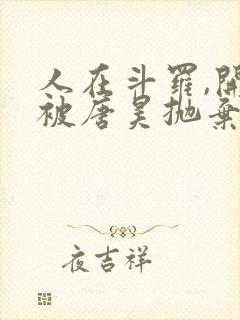 人在斗罗,開
被唐昊抛棄
夜吉祥